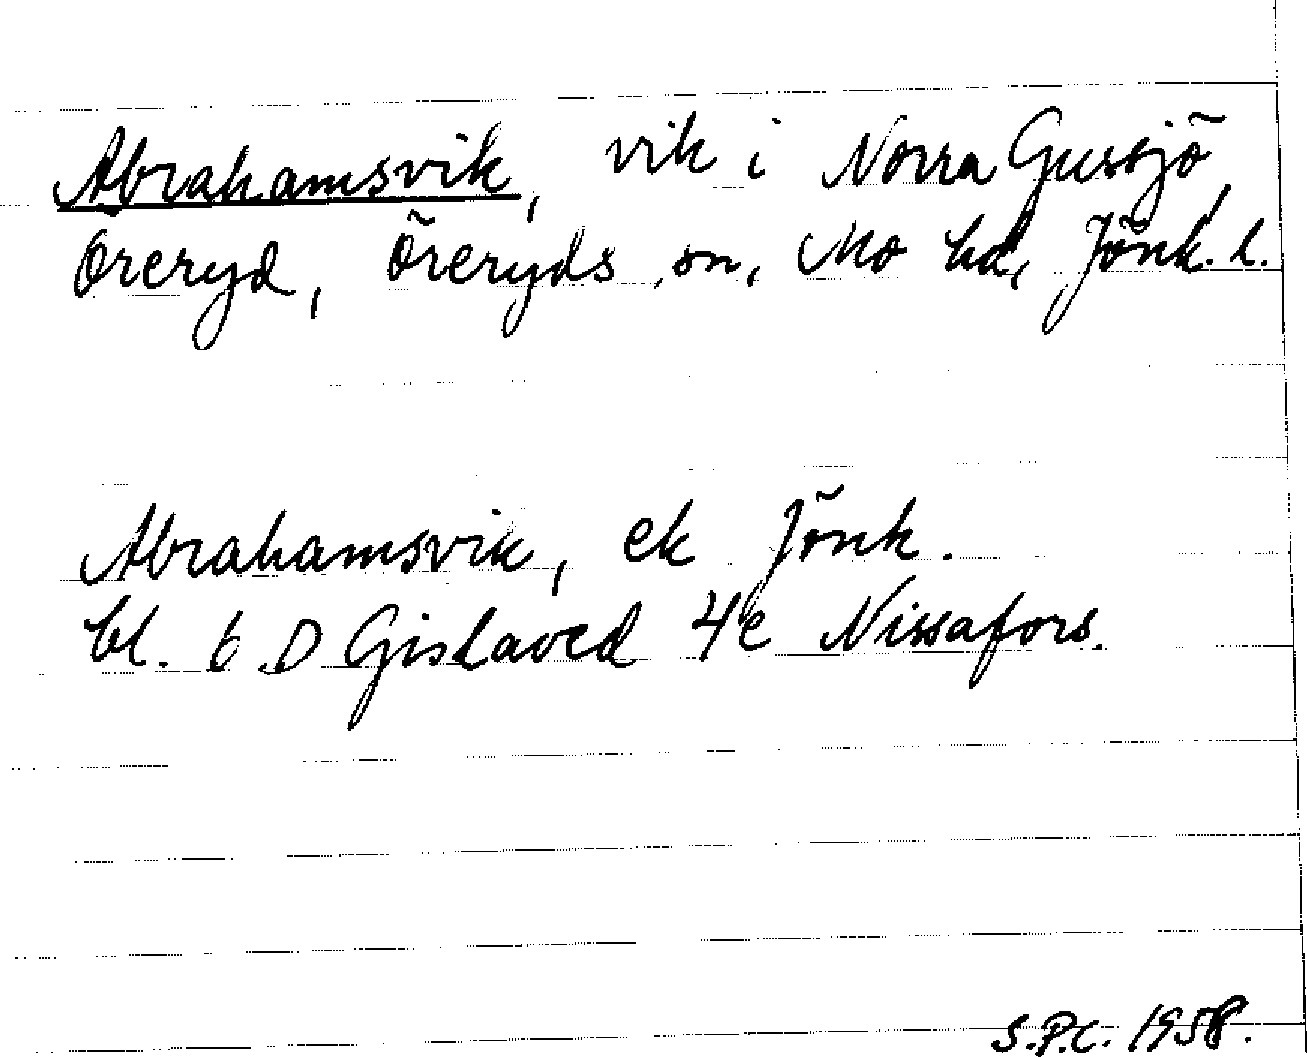 Abrahamsvik, vik i Norra Gussjö,
Öreryd, Öreryds sn, Mo hd, Jönk. l.
Abrahamsvik, ek Jönk.
bl. 6 D Gislaved 4e Nissafors.
S.P.C. 1958.